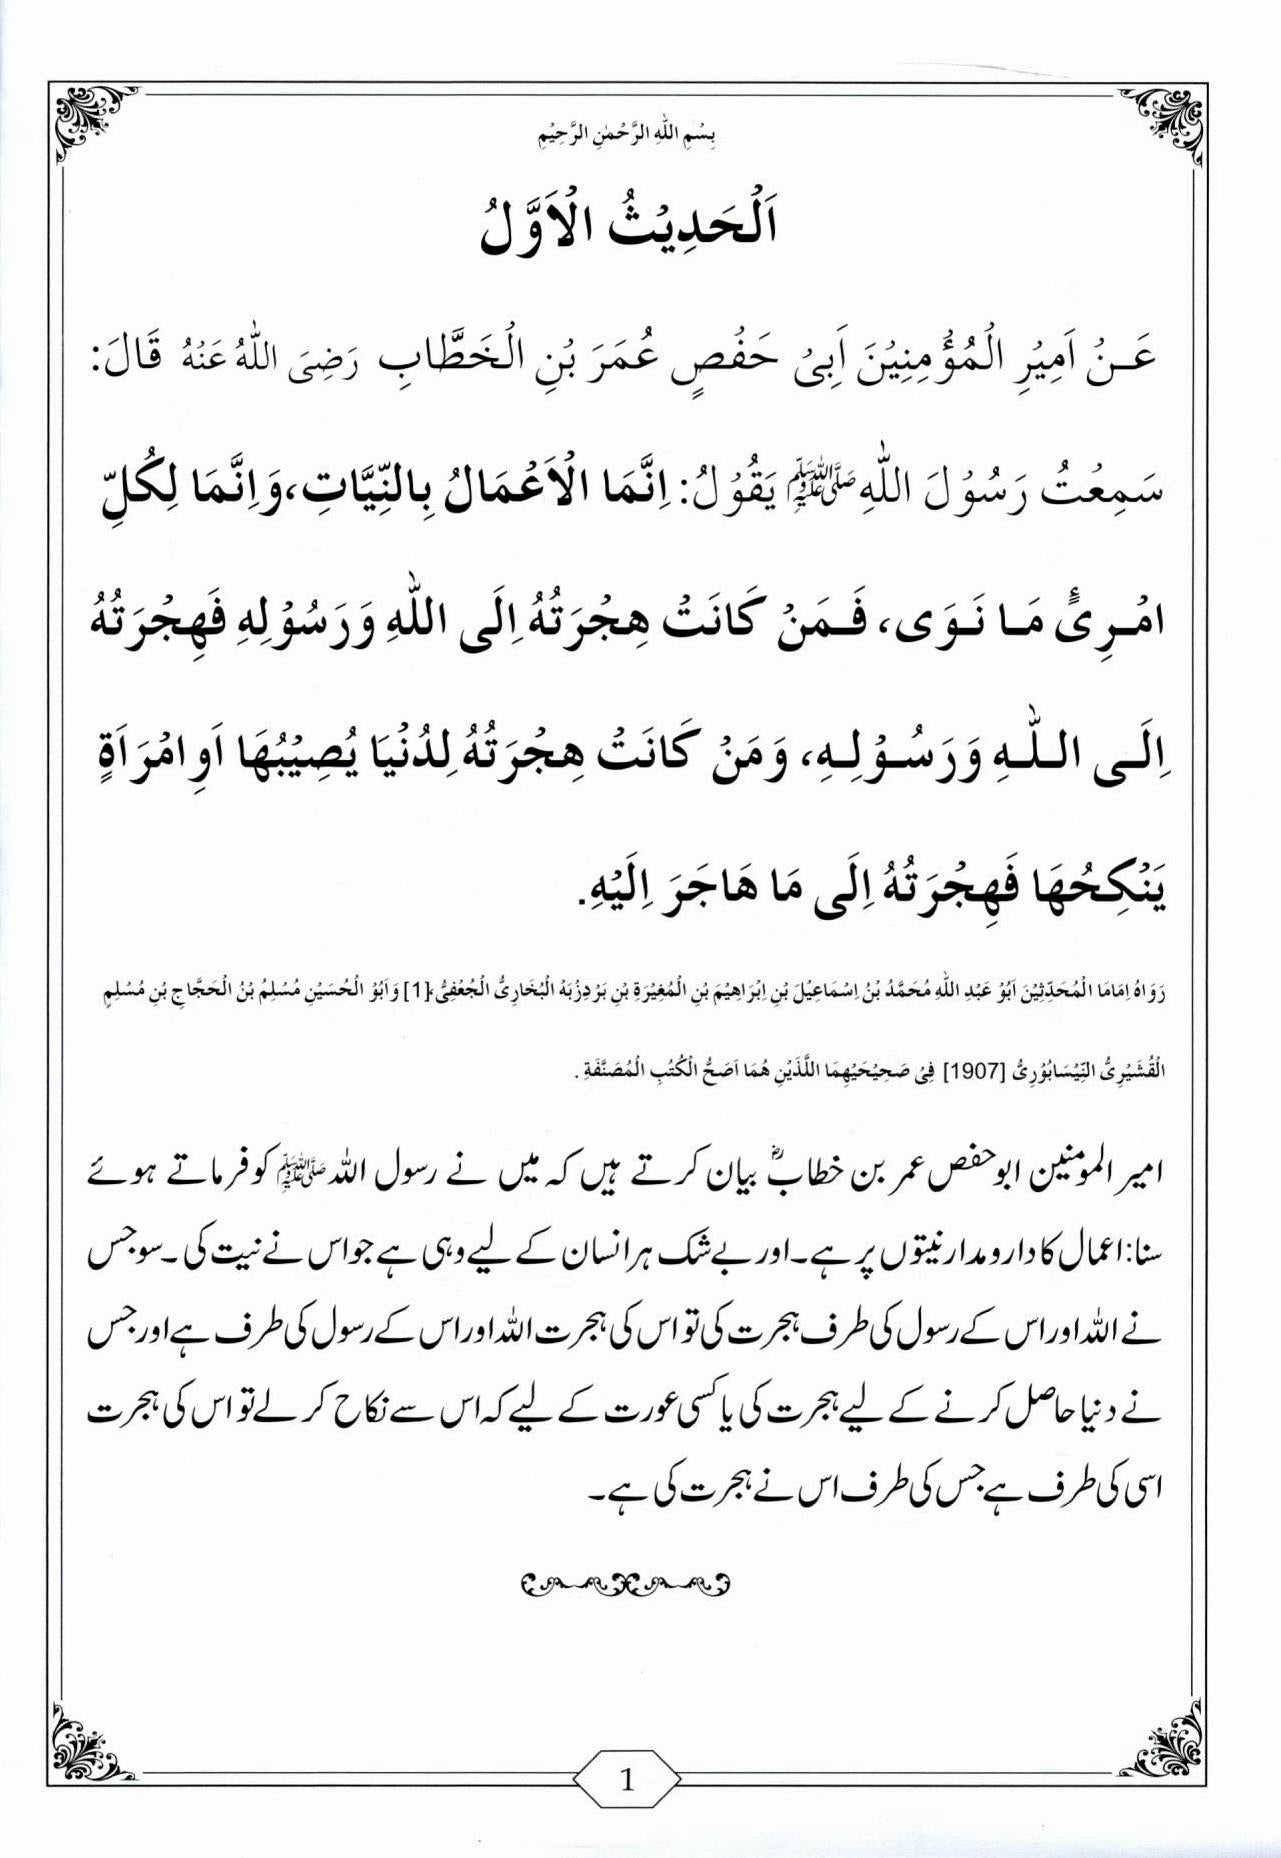 بِسْمِ اللهِ الرَّحْمٰنِ الرَّحِیْمِ
اَلْحَدِیْثُ الْاَوَّلُ
عَنْ اَمِیْرِ الْمُؤْمِنِیْنَ اَبِیْ حَفْصٍ عُمَرَ بْنِ الْخَطَّابِ رَضِیَ اللّٰهُ عَنْهُ قَالَ:
سَمِعْتُ رَسُوْلَ اللّٰهِ ﷺ یَقُوْلُ: اِنَّمَا الْاَعْمَالُ بِالنِّیَّاتِ، وَاِنَّمَا لِکُلِّ
امْرِیًٔ مَا نَوَی، فَمَنْ کَانَتْ هِجْرَتُهُ اِلَی اللّٰهِ وَرَسُوْلِهِ فَهِجْرَتُهُ
اِلَی اللّٰهِ وَرَسُوْلِهِ، وَمَنْ کَانَتْ هِجْرَتُهُ لِدُنْیَا یُصِیْبُهَا اَوِ امْرَاَةٍ
یَنْکِحُهَا فَهِجْرَتُهُ اِلَی مَا هَاجَرَ اِلَیْهِ.
رَوَاهُ اِمَامَا الْمُحَدِّثِیْنَ اَبُوْ عَبْدِ اللّٰهِ مُحَمَّدُ بْنُ اِسْمَاعِیْلَ بْنِ اِبْرَاهِیْمَ بْنِ الْمُغِیْرَةِ بْنِ بَرْدِزْبَهْ الْبُخَارِیُّ الْجُعْفِیُّ،[1] وَاَبُوْ الْحُسَیْنِ مُسْلِمُ بْنُ الْحَجَّاجِ بْنِ مُسْلِمٍ
الْقُشَیْرِیُّ النَّیْسَابُوْرِیُّ [1907] فِیْ صَحِیْحَیْهِمَا اللَّذَیْنِ هُمَا اَصَحُّ الْکُتُبِ الْمُصَنَّفَةِ.
امیر المومنین ابو حفص عمر بن خطابؓ بیان کرتے ہیں کہ میں نے رسول اللہ ﷺ کو فرماتے ہوئے
سنا: اعمال کا دارومدار نیتوں پر ہے۔ اور بے شک ہر انسان کے لیے وہی ہے جو اس نے نیت کی۔ سو جس
نے اللہ اور اس کے رسول کی طرف ہجرت کی تو اس کی ہجرت اللہ اور اس کے رسول کی طرف ہے اور جس
نے دنیا حاصل کرنے کے لیے ہجرت کی یا کسی عورت کے لیے کہ اس سے نکاح کر لے تو اس کی ہجرت
اسی کی طرف ہے جس کی طرف اس نے ہجرت کی ہے۔
1